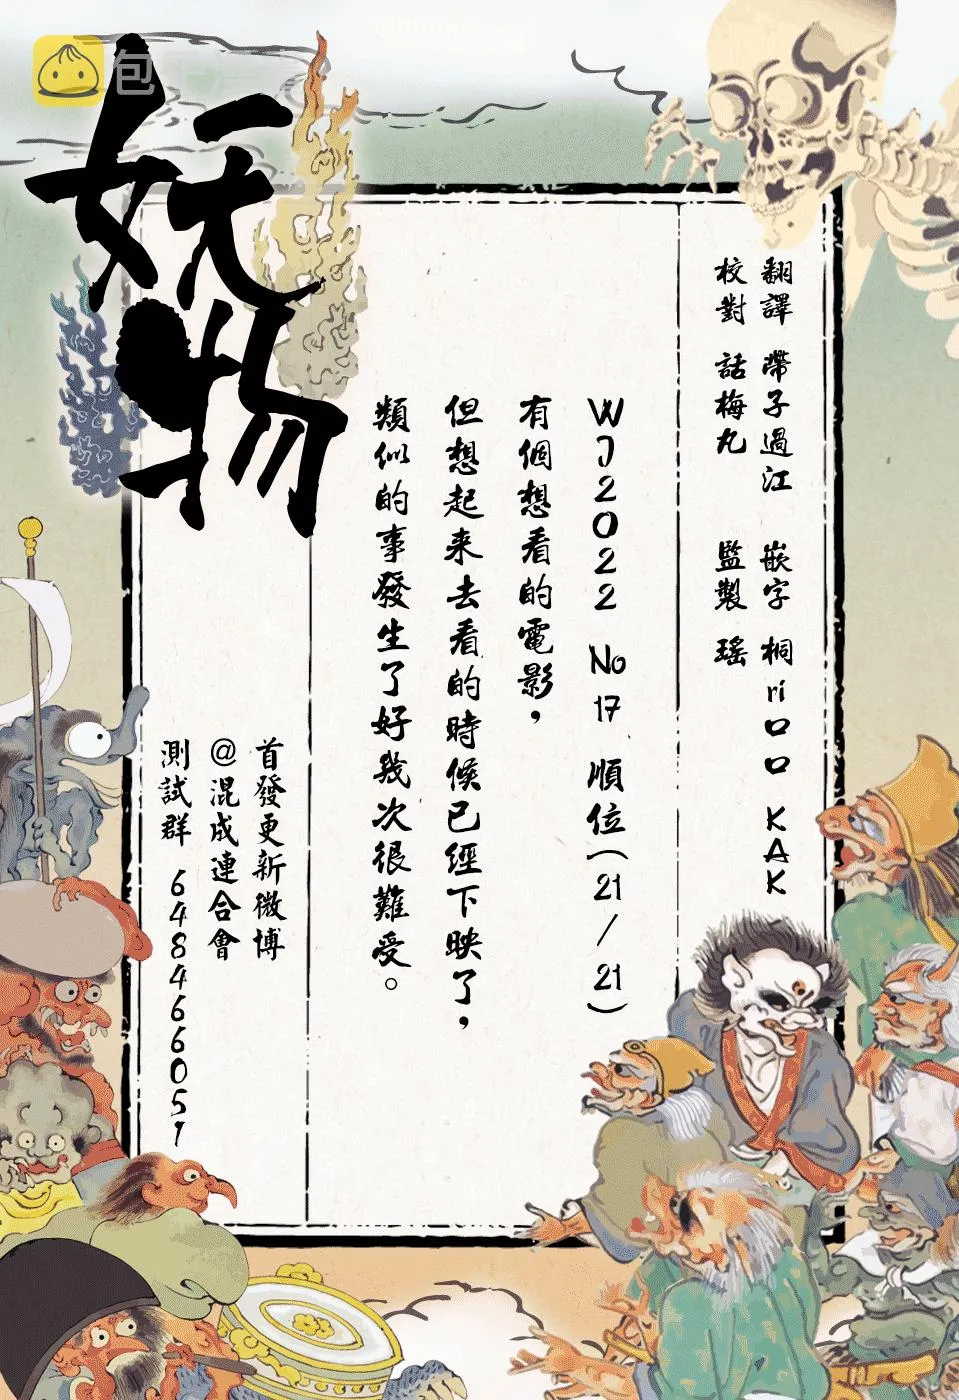 包
妖物
翻譯 帶子過江 嵌字 桐ri口口 KAK
校對 話梅丸 監製 瑤
WJ2022 No17 順位(21/21)
有個想看的電影，
但想起来去看的時候已經下映了，
類似的事發生了好幾次很難受。
首發更新微博
@混成連合會
測試群 648466051